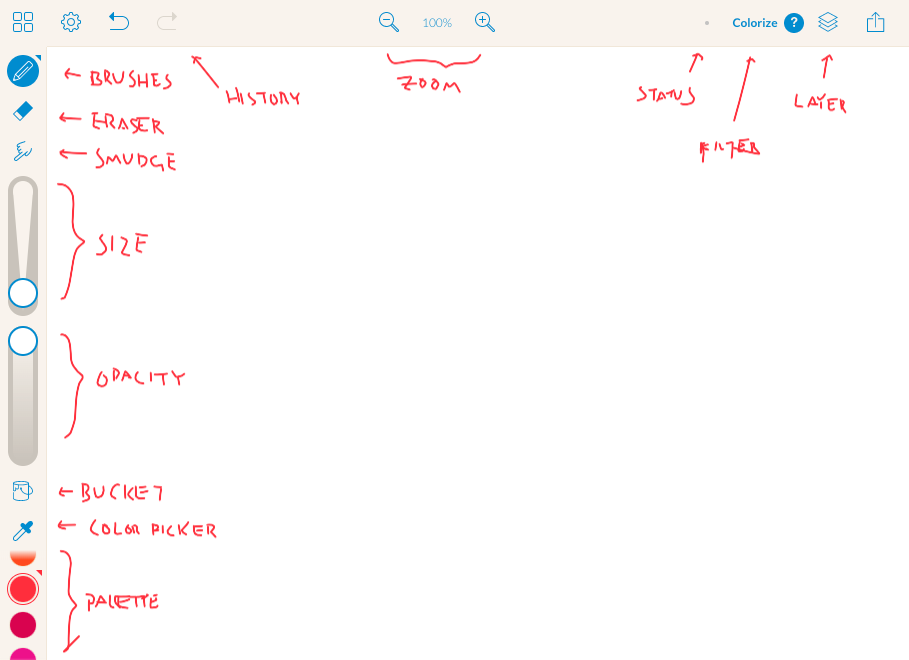 100%
Colorize ?
BRUSHES
HISTORY
ZOOM
STATUS
LAYER
ERASER
FILTER
SMUDGE
SIZE
OPACITY
BUCKET
COLOR PICKER
PALETTE